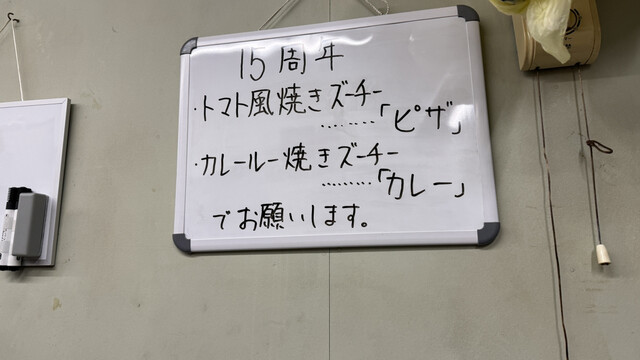 15周年
・トマト風焼きズーチー
………「ピザ」
・カレールー焼きズーチー
………「カレー」
でお願いします。